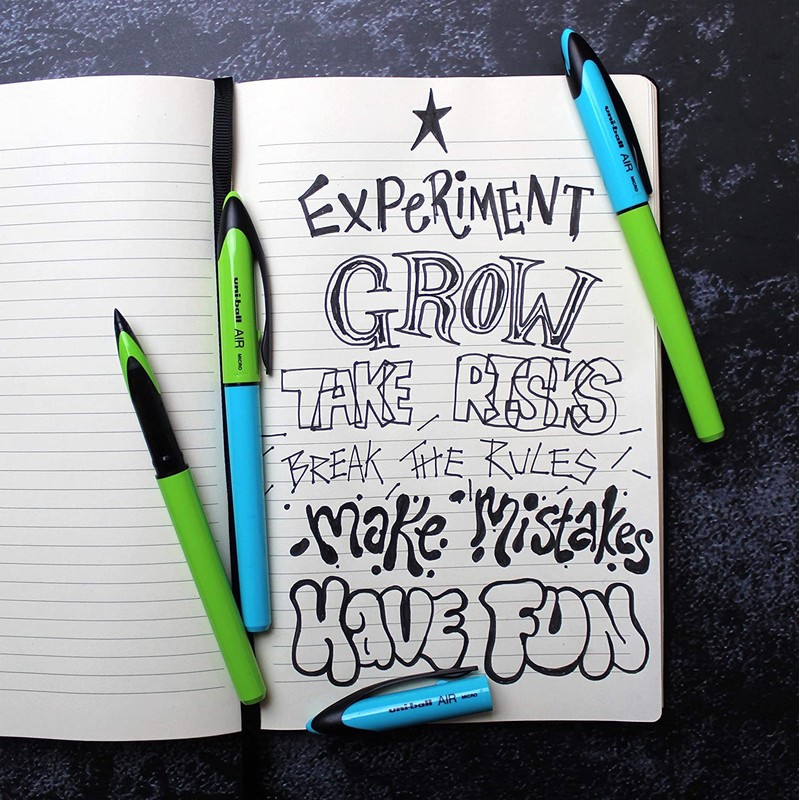 EXPERIMENT
GROW
TAKE RISKS
BREAK THE RULES
Make Mistakes
HAVE FUN
uni-ball AIR MICRO
uni-ball AIR MICRO
uni-ball AIR MICRO